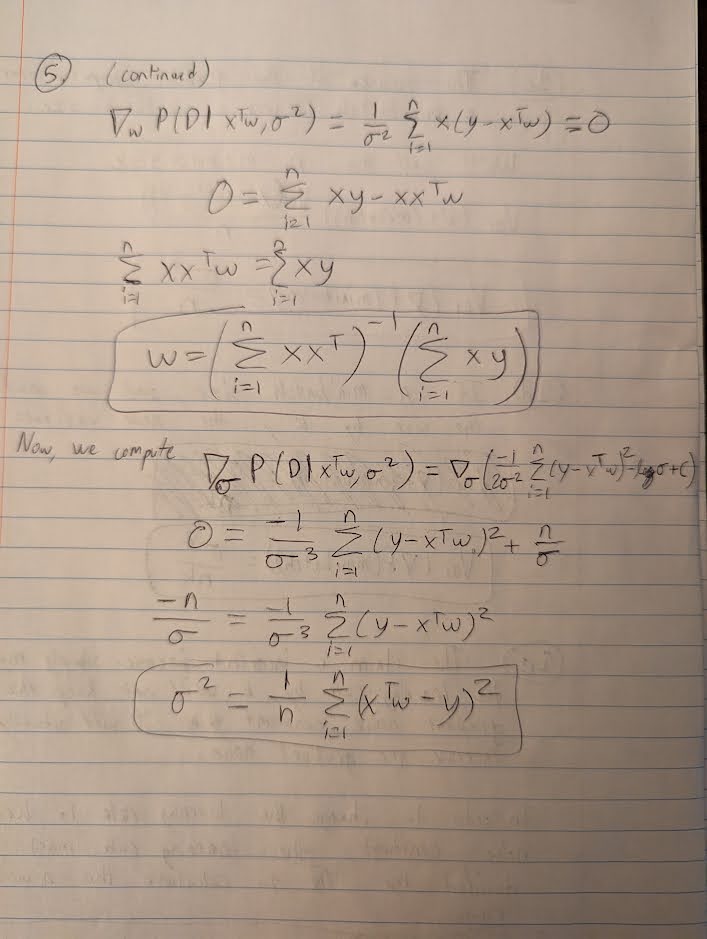 5. (continued)
∇_w P(D| x^T w, σ^2) = 1/σ^2 Σ_{i=1}^{n} x(y-x^T w) = 0
0 = Σ_{i=1}^{n} xy - xx^T w
Σ_{i=1}^{n} xx^T w = Σ_{i=1}^{n} xy
w = (Σ_{i=1}^{n} xx^T)^{-1} (Σ_{i=1}^{n} xy)
Now, we compute ∇_σ P(D| x^T w, σ^2) = ∇_σ (-1/2σ^2 Σ_{i=1}^{n} (y-x^T w)^2 - log σ + C)
0 = -1/σ^3 Σ_{i=1}^{n} (y-x^T w)^2 + n/σ
-n/σ = -1/σ^3 Σ_{i=1}^{n} (y-x^T w)^2
σ^2 = 1/n Σ_{i=1}^{n} (x^T w - y)^2